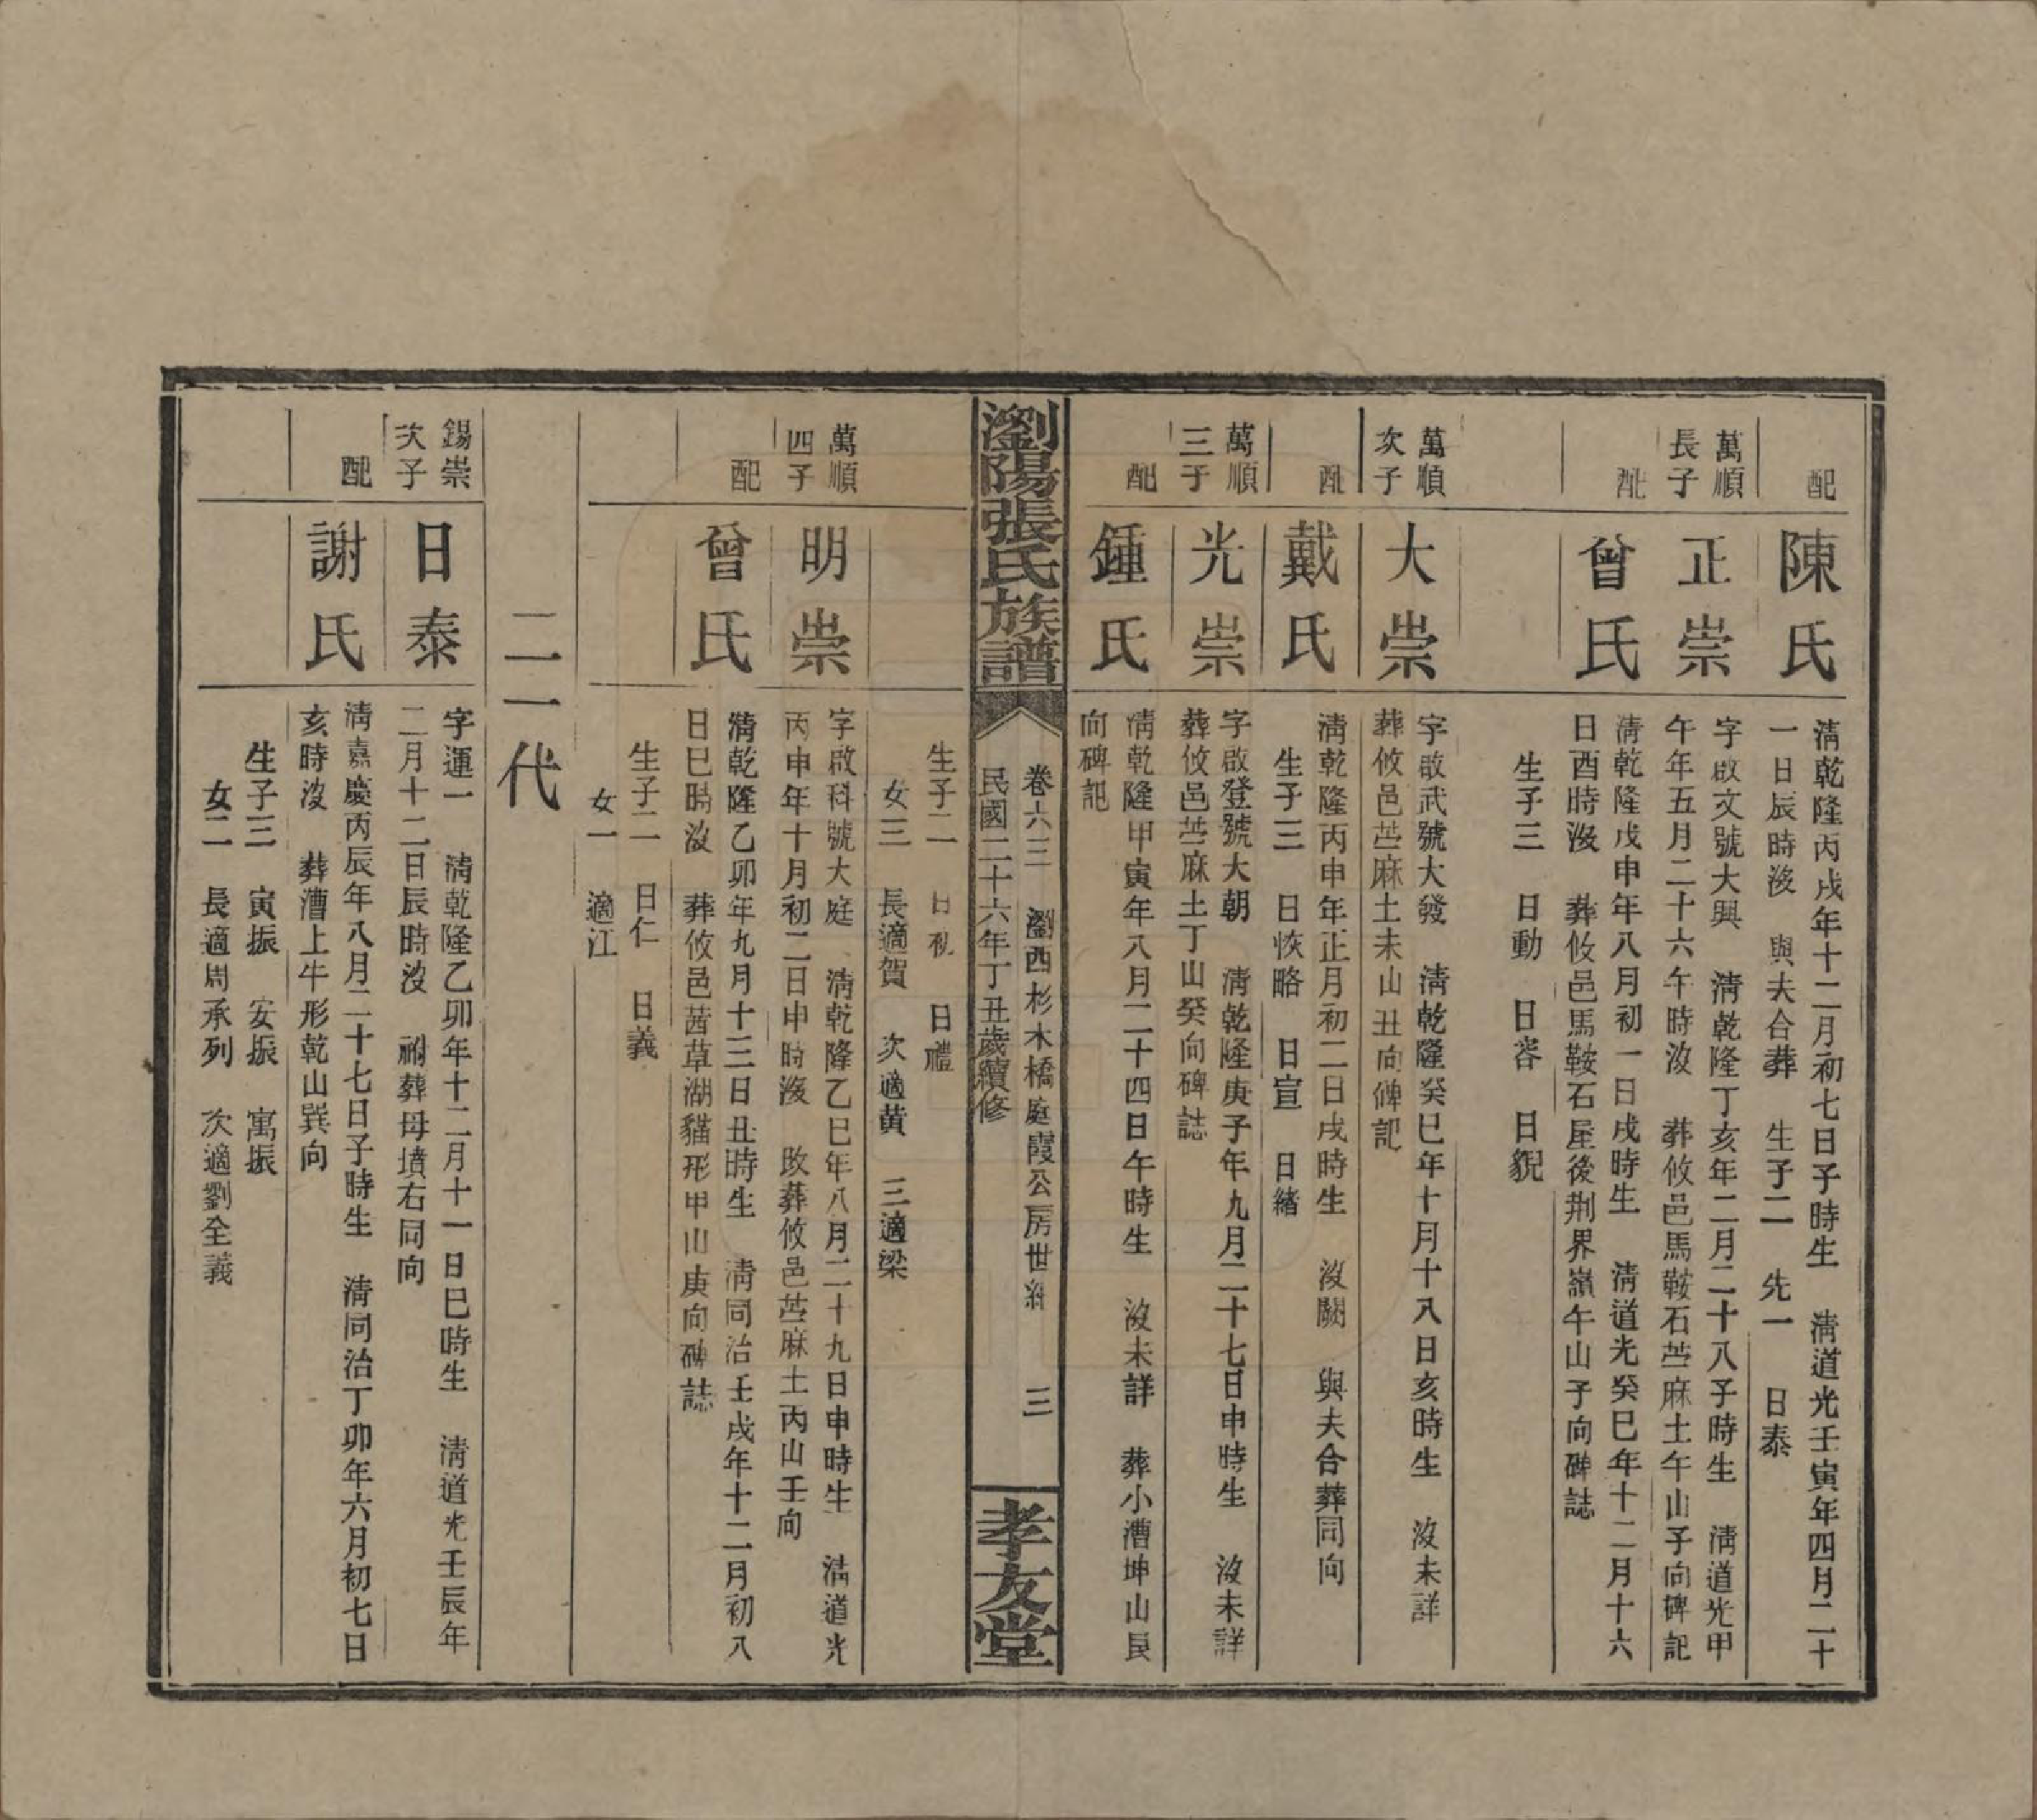 配
陳氏
清乾隆丙戌年十二月初七日子時生　清道光壬寅年四月二十
一日辰時沒　與夫合葬　生子二　先一　日泰
萬順
長子
正崇
字啟文號大興　清乾隆丁亥年二月二十八子時生　清道光甲
午年五月二十六午時沒　葬攸邑馬鞍石苎麻土午山子向碑記
配
曾氏
清乾隆戊申年八月初一日戌時生　清道光癸巳年十二月十六
日酉時沒　葬攸邑馬鞍石屋後荆界嶺午山子向碑誌
生子三　日動　日容　日貌
萬順
次子
大崇
字啟武號大發　清乾隆癸巳年十月十八日亥時生　沒未詳
葬攸邑苎麻土未山丑向碑記
配
戴氏
清乾隆丙申年正月初二日戌時生　沒闕　與夫合葬同向
生子三　日恢略　日宣　日緒
萬順
三子
光崇
字啟登號大朝　清乾隆庚子年九月二十七日申時生　沒未詳
葬攸邑苎麻土丁山癸向碑誌
配
鍾氏
清乾隆甲寅年八月二十四日午時生　沒未詳　葬小漕坤山艮
向碑記
瀏陽張氏族譜
卷六三　瀏西杉木橋庭霞公房世系　三
民國二十六年丁丑歲續修
孝友堂
生子二　日祝　日禮
女三　長適賀　次適黃　三適梁
萬順
四子
明崇
字啟科號大庭　清乾隆乙巳年八月二十九日申時生　清道光
丙申年十月初二日申時沒　改葬攸邑苎麻土丙山壬向
配
曾氏
清乾隆乙卯年九月十三日丑時生　清同治壬戌年十二月初八
日巳時沒　葬攸邑茜草湖貓形甲山庚向碑誌
生子二　日仁　日義
女一　適江
二一代
錫崇
次子
日泰
字運一　清乾隆乙卯年十二月十一日巳時生　清道光壬辰年
二月十二日辰時沒　祔葬母墳右同向
配
謝氏
清嘉慶丙辰年八月二十七日子時生　清同治丁卯年六月初七日
亥時沒　葬漕上牛形乾山巽向
生子三　寅振　安振　寓振
女二　長適周承列　次適劉全義